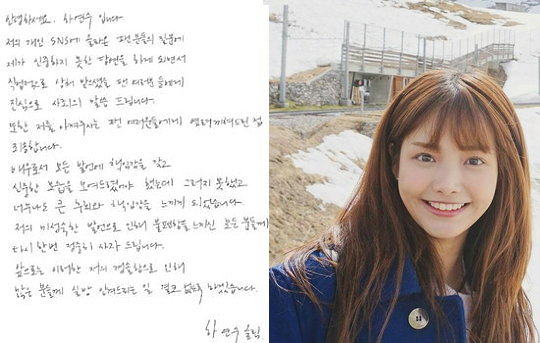 안녕하세요. 하연수 입니다
저의 개인 SNS에 올라온 팬분들의 질문에
제가 신중하지 못한 답변을 하게 되면서
직접적으로 상처 받으셨을 팬 여러분들에게
진심으로 사죄의 말씀 드립니다.
또한 저를 아껴주시는 팬 여러분들에게 염려 끼쳐드린 점
죄송합니다.
배우로서 모든 발언에 책임감을 갖고
신중한 모습을 보여드렸어야 했는데 그러지 못했고
너무나도 큰 후회와 책임감을 느끼게 되었습니다.
저의 미성숙한 발언으로 인해 불편함을 느끼신 모든 분들께
다시 한번 정중히 사과 드립니다.
앞으로는 이러한 저의 경솔함으로 인해
많은 분들께 실망 안겨드리는 일 결코 없도록 하겠습니다.
하연수 올림